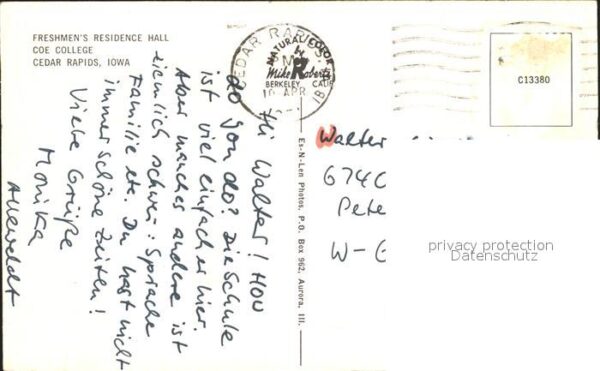 FRESHMEN'S RESIDENCE HALL
COE COLLEGE
CEDAR RAPIDS, IOWA
Hi Walter! How
do you do? Die Schule
ist viel einfacher hier.
Aber manches andere ist
ziemlich schwer: Sprache
Familie etc. Du hast nicht
immer schöne Zeiten!
Viele Grüße
Monika
Alleweldt
CEDAR RAPIDS
NATURAL COLOR
Mike Roberts
BERKELEY CALIF
10 APR
Ex-N-Len Photos, P.O. Box 962, Aurora, Ill.
C13380
Walter
6740
Pete
W-G
privacy protection
Datenschutz